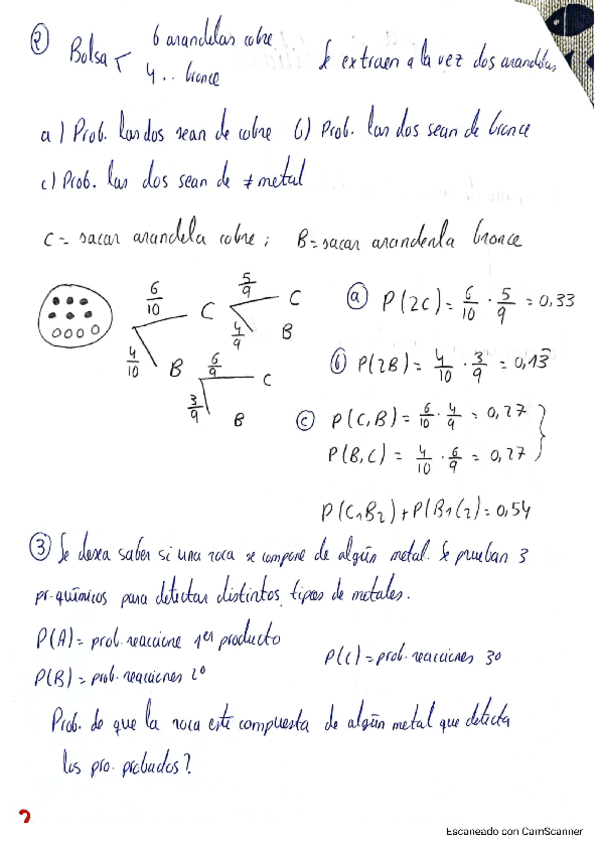 ② Bolsa < 6 arandelas cobre
4 .. bronce
Se extraen a la vez dos arandelas
a) Prob. las dos sean de cobre b) Prob. las dos sean de bronce
c) Prob. las dos sean de ≠ metal
C = sacar arandela cobre; B = sacar arandenla bronce
6/10 C 5/9 C
4/9 B
4/10 B 6/9 C
3/9 B
ⓐ P(2C) = 6/10 · 5/9 = 0,33
ⓑ P(2B) = 4/10 · 3/9 = 0,13
ⓒ P(C,B) = 6/10 · 4/9 = 0,27
P(B,C) = 4/10 · 6/9 = 0,27
P(C1B2) + P(B1C2) = 0,54
③ Se desea saber si una roca se compone de algún metal. Se prueban 3
pr. químicos para detectar distintos tipos de metales.
P(A) = prob. reaccione 1er producto
P(B) = prob. reacciones 2º
P(C) = prob. reacciones 3º
Prob. de que la roca esté compuesta de algún metal que detecta
los pro. probados?
2
Escaneado con CamScanner